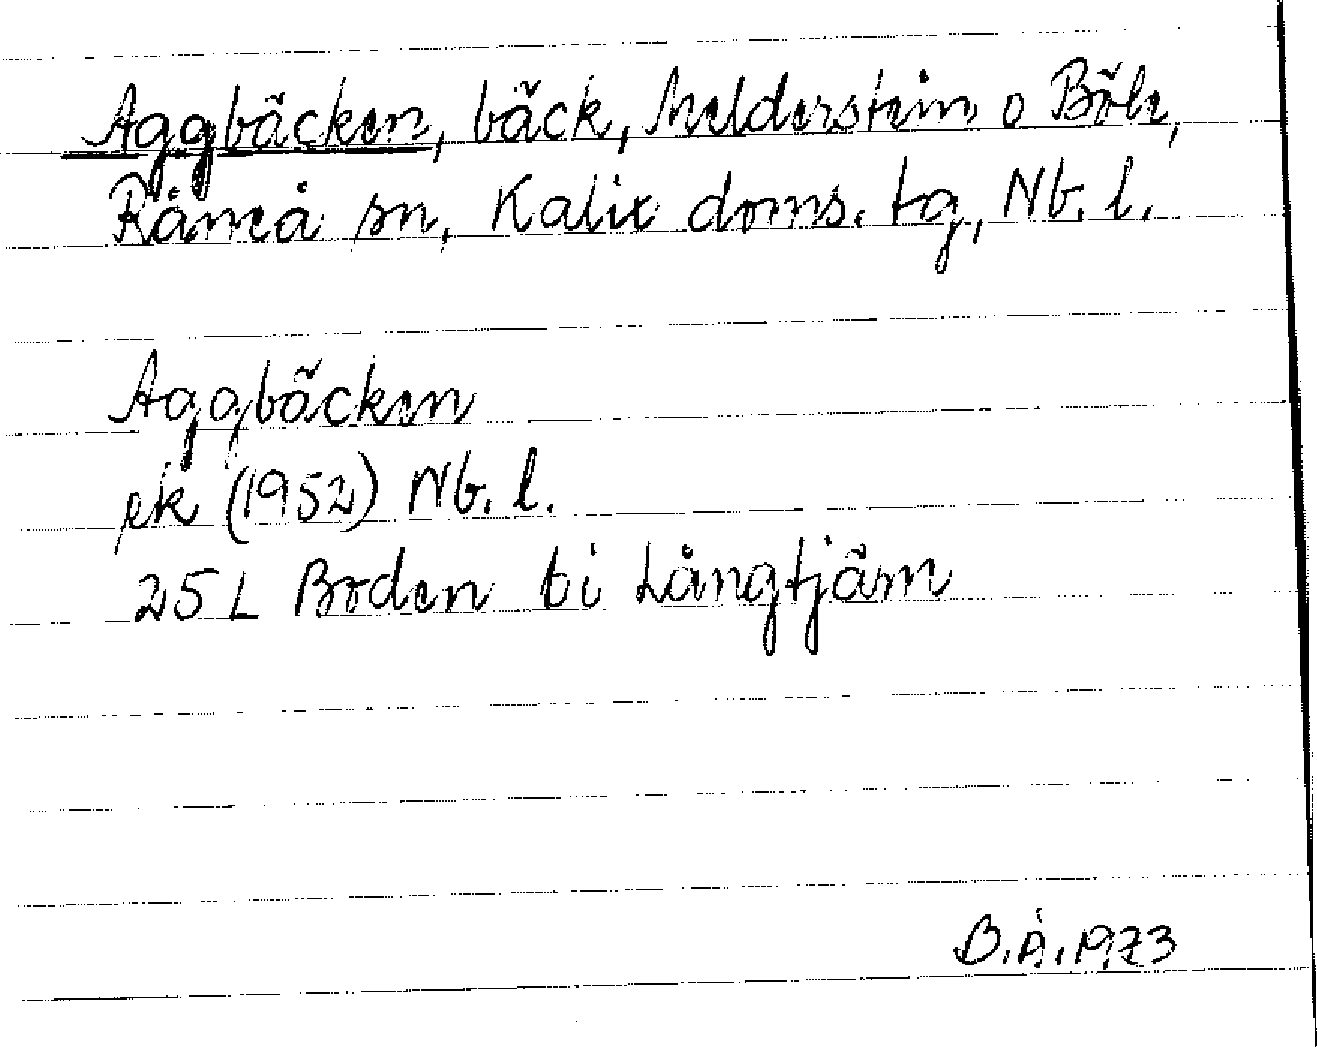 Aggbäcken, bäck, Melderstein o Böle,
Råneå sn, Kalix doms. tg, Nb. l.
Aggbäcken
ek (1952) Nb. l.
25 L Boden bi Långtjärn
B.Å. 1973